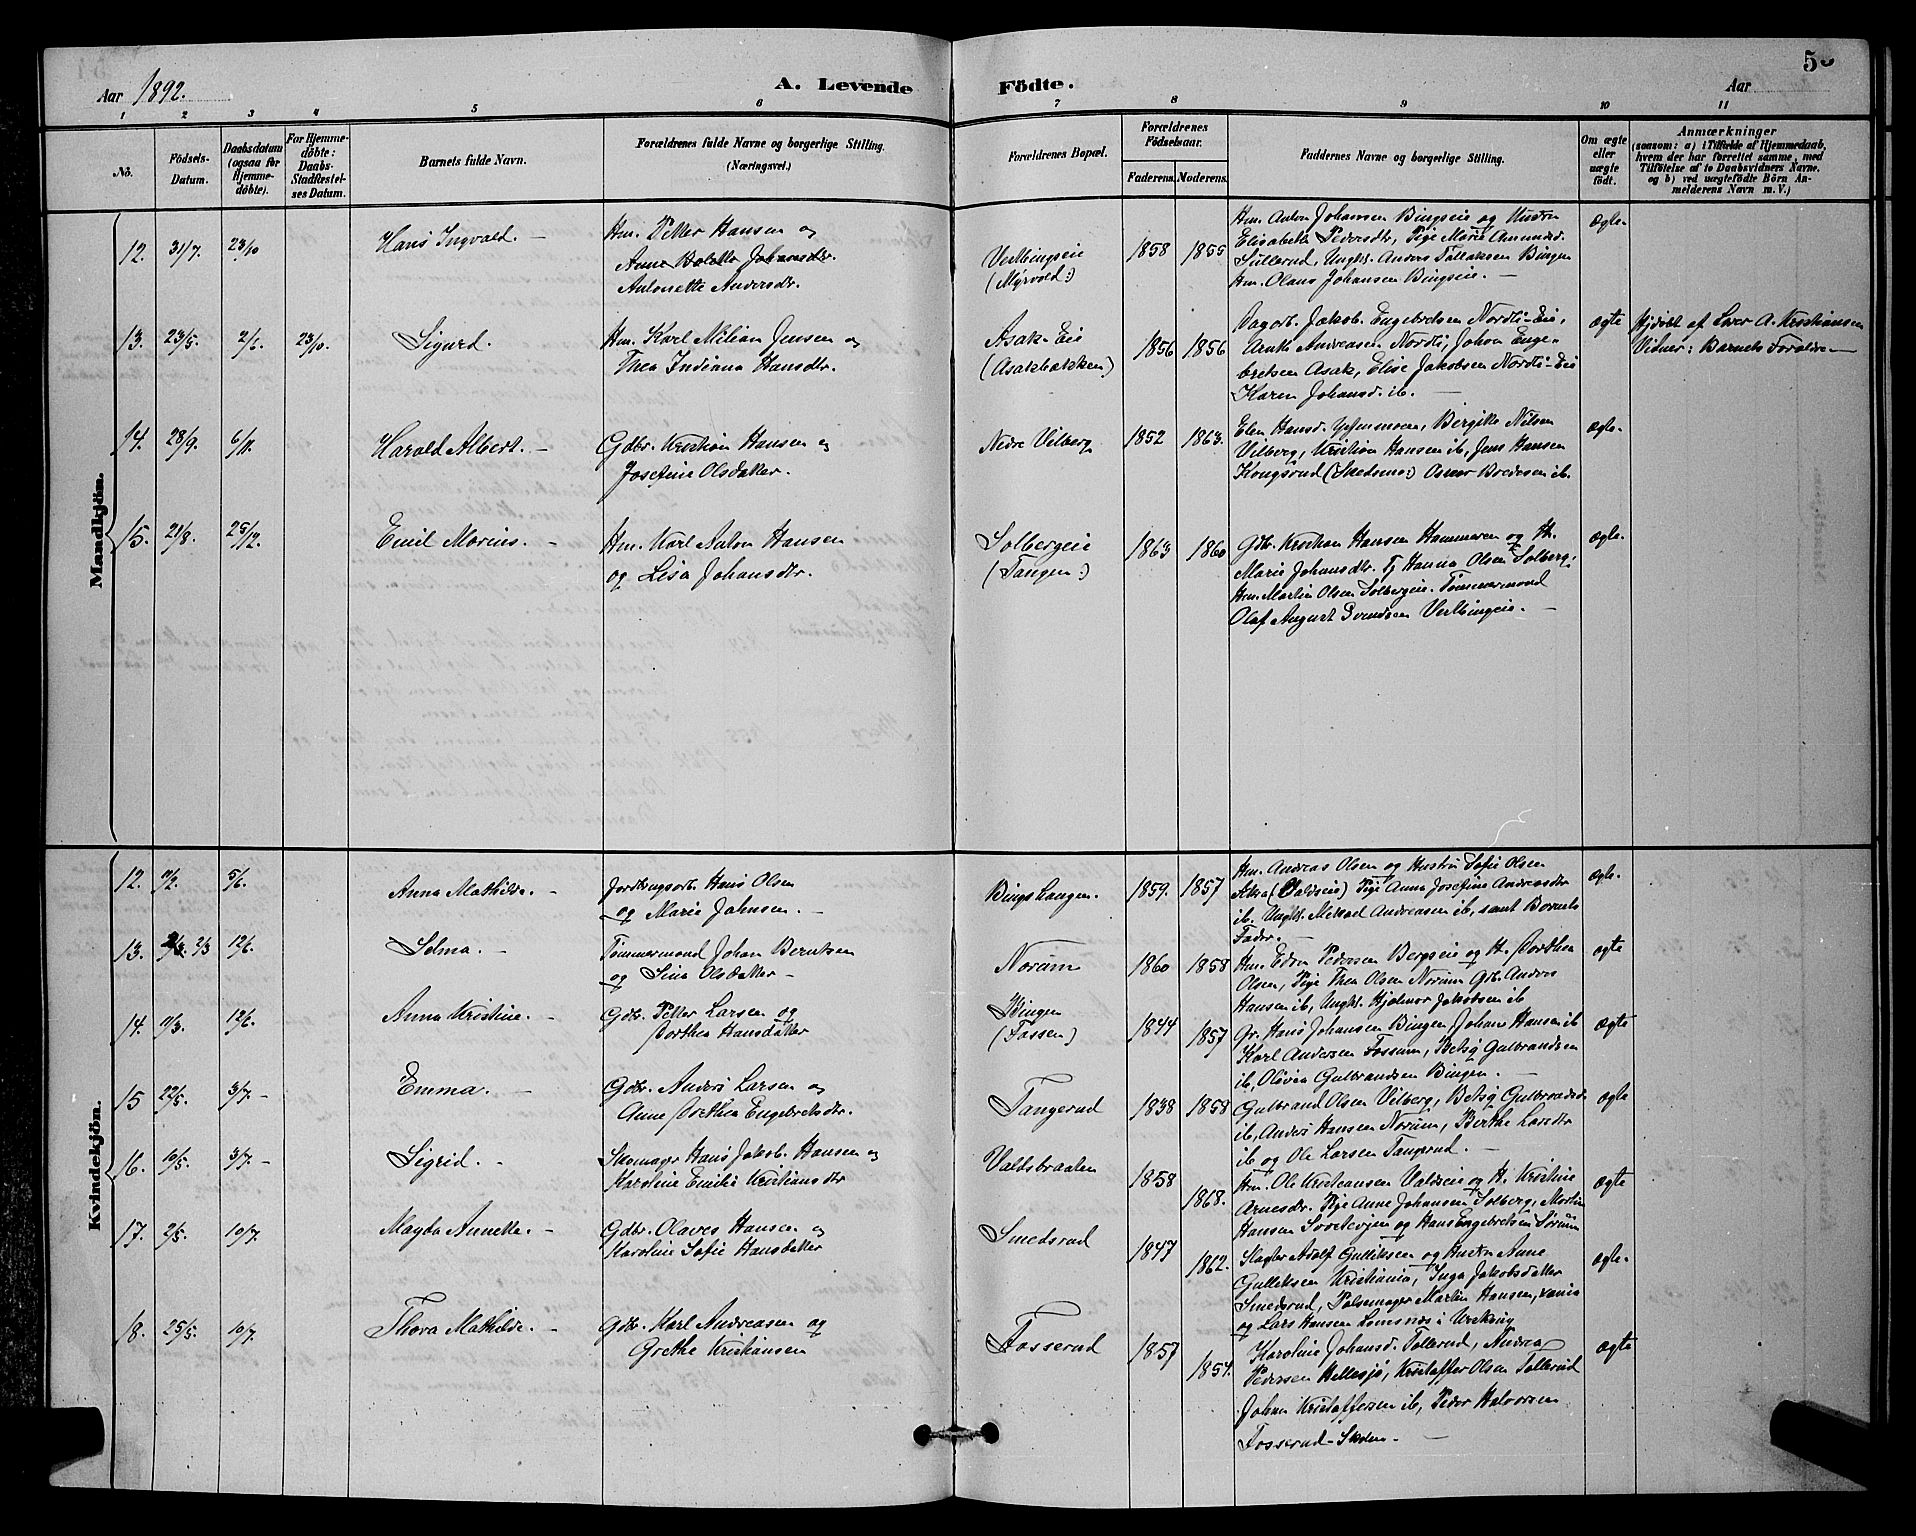 Aar 1892.
A. Levende Födte.
Aar
1 2 3 4 5 6 7 8 9 10 11
No.
Födsels-
Datum.
Daabsdatum
(ogsaa för
Hjemme-
döbte).
For Hjemme-
döbte:
Daabs-
Stadfæstel-
ses Datum.
Barnets fulde Navn.
Forældrenes fulde Navne og borgerlige Stilling.
(Næringsvei.)
Forældrenes Bopæl.
Forældrenes
Födselsaar.
Faderens. Moderens.
Faddernes Navne og borgerlige Stilling.
Om ægte
eller
uægte
födt.
Anmærkninger
(saasom: a) i Tilfælde af Hjemmedaab,
hvem der har forrettet samme, med
Tilföielse af to Daabsvidners Navne,
og b) ved uægtefödte Börn An-
melderens Navn m. V.)
Mandkjön.
12. 31/7. 23/10 Hans Ingvald. –
Hm. Petter Hansen og
Anne Bolette Johansdtr.
Antonette Andersdtr.
Vestbingseie
(Myrvold:)
1858 1855
Hm. Anton Johansen Bingseie og Hustru
Elisabeth Pedersdtr, Pige Marie Amundsd.
Sullerud, Ungk. Anders Tollaksen Bingen
Hm. Olaus Johansen Bingseie. –
Ægte.
13. 23/5. 2/6. 23/10. Sigurd.
Hm. Karl Milian Jensen og
Thea Indiana Hansdtr.
Asak-Eie
(Asakbakken)
1856 1856
Dagarb. Jakob Engebretsen Nordli-Eie,
Arnth Andreasen Nordli, Johan Enge-
bretsen Asak, Elise Jakobsen Nordli-Eie
Karen Johansd. ib. –
ægte
Hjdöbt af Lærer A. Kristiansen
Vidner: Barnets Forældre –
14. 28/9. 6/11. Harald Albert. –
Gdbr. Kristian Hansen og
Josefine Olsdatter.
Nedre Vilberg 1852 1863.
Elen Hansd. Hammeren, Bergitte Nilsen
Vilberg, Kristian Hansen ib, Jens Hansen
Kongsrud (Skedsmo:) Asmor Bredesen ib.
ægte.
15. 21/8. 25/12. Emil Marius. –
Hm. Karl Anton Hansen
og Lisa Johansdtr.
Solbergeie
(Tangen:)
1863 1860
Gdbr. Kristian Hansen Hammeren og H.
Marie Johansdtr. Pj Hanna Olsen Solberg,
Hm. Martin Olsen Solbergeie. Tömmermand
Olaf August Svendsen Vestbingeie. –
ægte.
Kvindekjön.
12. 11/2. 5/6. Anna Mathilde. –
Jordbrugsarb. Hans Olsen
og Marie Johnsen. –
Bingshaugen. 1859. 1857
Hm. Andreas Olsen og Hustru Sofie Olsen
Aska (Valdseie) Pige Anna Josefine Andreasdtr
ib. Ungk. Mikael Andreasen ib, samt Barnets
Fader. –
ægte.
13. 2/3 12/6. Selma. –
Tömmermand Johan Berntsen
og Lina Olsdatter –
Norum 1860 1858
Hm. Edvin Pedersen Bergseie og H. Dorthea
Olsen, Pige Thea Olsen Norum Gbr. Anders
Hansen ib, Ungk. Hjalmar Jakobsen ib
ægte
14. 11/3. 12/6. Anna Kristine. –
Gdbr. Petter Larsen og
Dorthea Hansdatter
Bingen
(Fossen)
1844 1857
Gr. Hans Johansen Bingen, Johans Hansen ib
Karl Andersen Fossum, Betsy Gulbrandsen
ib, Olövea Gulbrandsen Bingen. –
Ægte
15 22/5. 3/7. – Emma. –
Gdbr. Anders Larsen og
Anne Dorthea Engebretsdtr.
Tangerud 1838 1858
Gulbrand Olsen Vilberg, Betsy Gulbrandsd.
ib, Anders Hansen Norum, Berthe Larsdtr
ib og Ole Larsen Tangerud. –
ægte
16. 10/5. 3/7. – Sigrid. –
Skomager Hans Jakob Hansen og
Karoline Emilie Kristiansdtr
Valdsbraaten
1858 1868.
Hm. Ole Kristiansen Valdseie og H. Kristine
Arnesdtr. Pige Anne Johansen Solberg, Martin
Hansen og Hans Engebretsen Sörum
ægte
17. 2/5. 10/7. Magda Annette. –
Gdbr. Olaves Hansen og
Karoline Sofie Hansdatter
Smedsrud
1847 1862.
Slagter Adolf Gulliksen og Hustru Anne
Gulliksen Kristiania, Inga Jakobsdatter
Smedsrud, Pölsemager Martin Hansen, xania
og Lars Hansen Lomsnæs i Urskoug
ægte.
18. 25/5. 10/7. Thora Mathilde. –
Gdbr. Karl Andreasen og
Grethe Kristiansen
Fosserud
1857 1854.
Karoline Johansd. Tollerud, Andrea
Pedersen Hellesjö, Kristaffer Olsen Tollerud
Johan Kristaffersen ib, Peder Halvorsen
Fosserud-Skolen. –
ægte